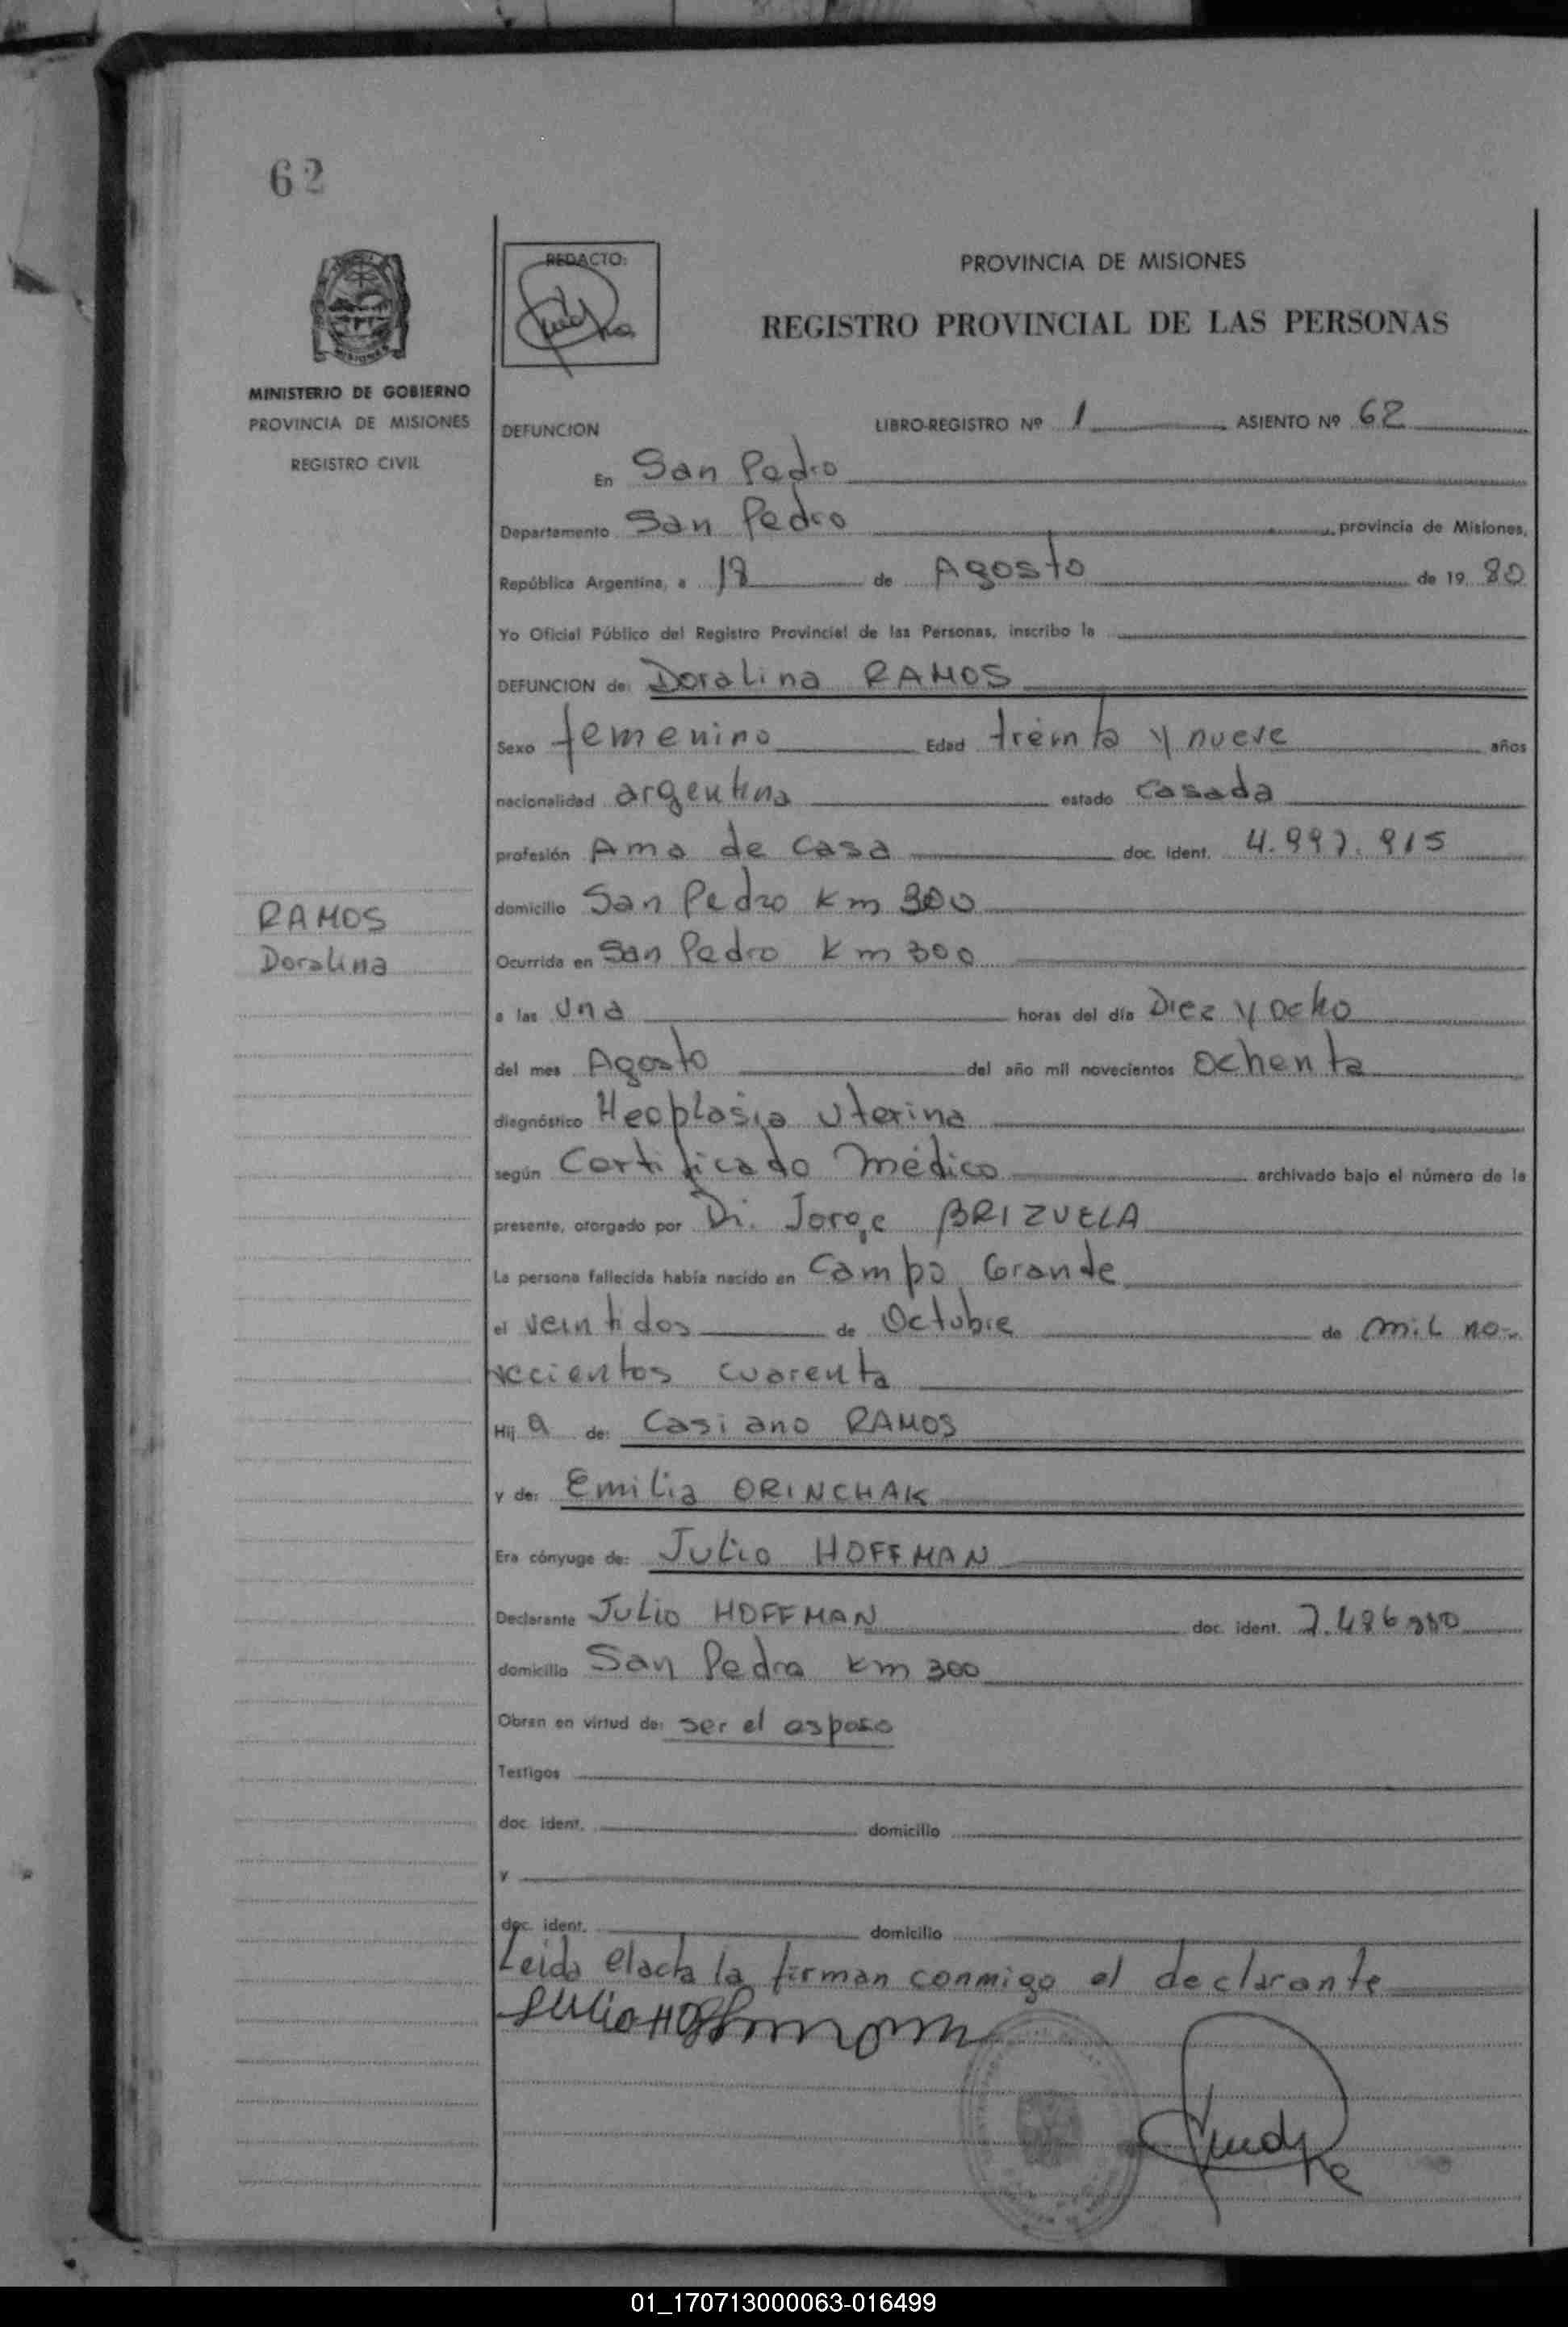 62
REDACTO:
PROVINCIA DE MISIONES
REGISTRO PROVINCIAL DE LAS PERSONAS
MINISTERIO DE GOBIERNO
PROVINCIA DE MISIONES
REGISTRO CIVIL
DEFUNCION LIBRO-REGISTRO Nº 1 ASIENTO Nº 62
En San Pedro
Departamento San Pedro provincia de Misiones,
República Argentina, a 18 de Agosto de 19 80
Yo Oficial Público del Registro Provincial de las Personas, inscribo la
DEFUNCION de: Doralina RAMOS
Sexo femenino Edad treinta y nueve años
nacionalidad argentina estado casada
profesión Ama de casa doc. ident. 4.997.915
domicilio San Pedro Km 300
RAMOS
Doralina
Ocurrida en San Pedro Km 300
a las una horas del día Diez y ocho
del mes Agosto del año mil novecientos ochenta
diagnóstico Neoplasia uterina
según Certificado Médico archivado bajo el número de la
presente, otorgado por Dr. Jorge BRIZUELA
La persona fallecida había nacido en Campo Grande
el veintidos de Octubre de mil no-
vecientos cuarenta
Hij a de: Casiano RAMOS
y de: Emilia ORINCHAK
Era cónyuge de: Julio HOFFMAN
Declarante Julio HOFFMAN doc. ident.
domicilio San Pedro Km 300
Obran en virtud de: ser el esposo
Testigos
doc. ident. domicilio
y
doc. ident. domicilio
Leida el acta la firman conmigo el declarante
Julio HOFFmann
01_170713000063-016499